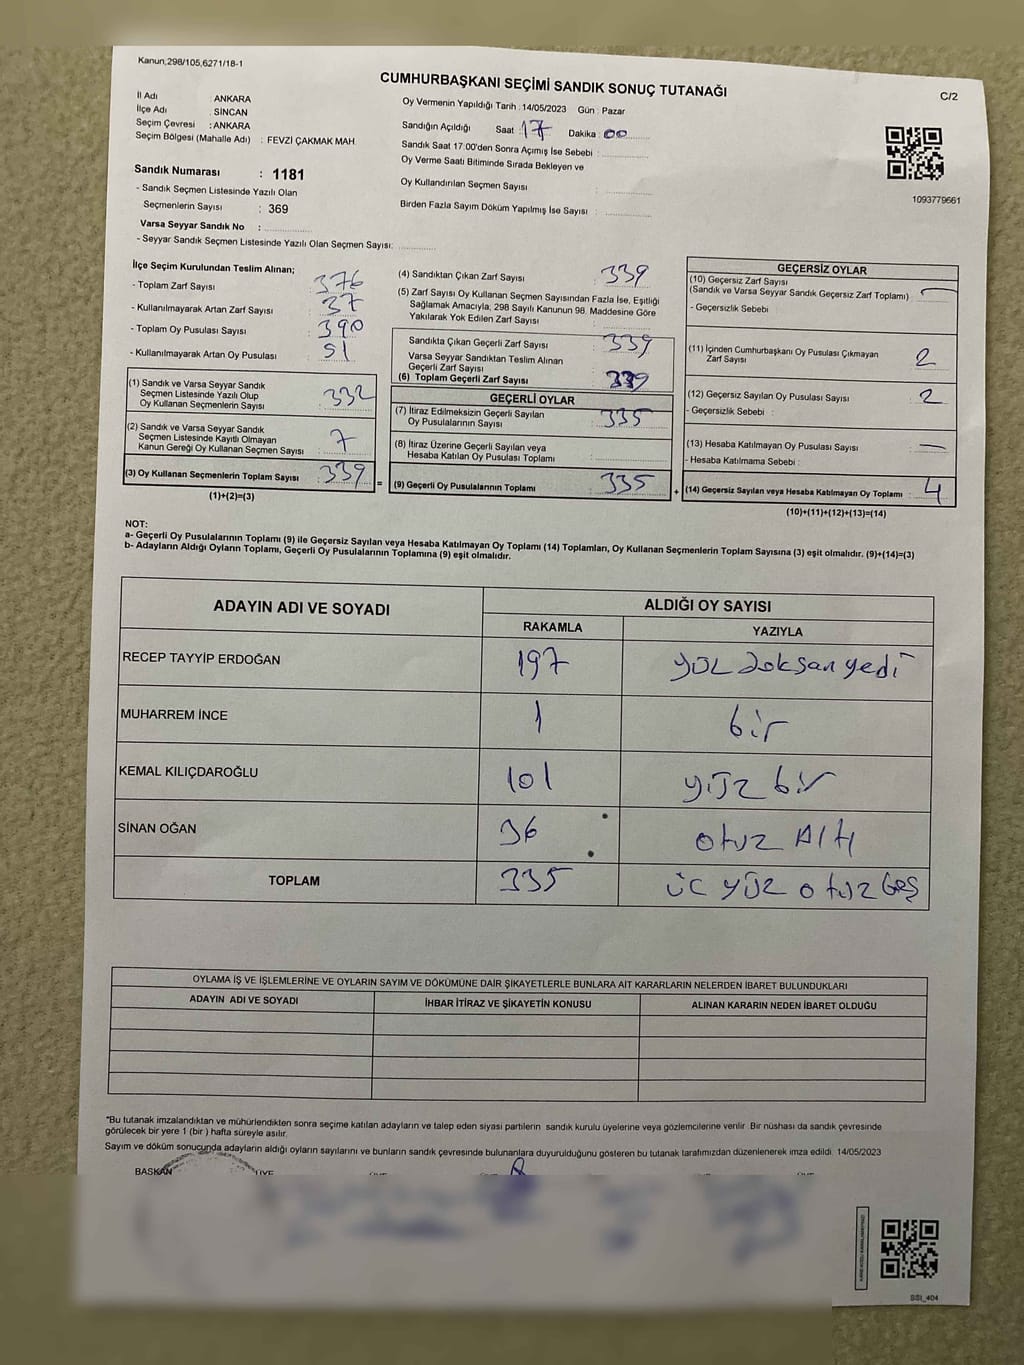 Kanun,298/105,6271/18-1
CUMHURBAŞKANI SEÇİMİ SANDIK SONUÇ TUTANAĞI
C/2
İl Adı : ANKARA
İlçe Adı : SİNCAN
Seçim Çevresi : ANKARA
Seçim Bölgesi (Mahalle Adı) : FEVZİ ÇAKMAK MAH
Oy Vermenin Yapıldığı Tarih : 14/05/2023 Gün : Pazar
Sandığın Açıldığı Saat : 17 Dakika : 00
Sandık Saat 17:00'den Sonra Açımış İse Sebebi :
Oy Verme Saati Bitiminde Sırada Bekleyen ve
Oy Kullandırılan Seçmen Sayısı :
Birden Fazla Sayım Döküm Yapılmış İse Sayısı :
1093779661
Sandık Numarası : 1181
- Sandık Seçmen Listesinde Yazılı Olan
Seçmenlerin Sayısı : 369
Varsa Seyyar Sandık No :
- Seyyar Sandık Seçmen Listesinde Yazılı Olan Seçmen Sayısı:
İlçe Seçim Kurulundan Teslim Alınan;
- Toplam Zarf Sayısı : 376
- Kullanılmayarak Artan Zarf Sayısı : 37
- Toplam Oy Pusulası Sayısı : 390
- Kullanılmayarak Artan Oy Pusulası : 51
(1) Sandık ve Varsa Seyyar Sandık
Seçmen Listesinde Yazılı Olup
Oy Kullanan Seçmenlerin Sayısı : 332
(2) Sandık ve Varsa Seyyar Sandık
Seçmen Listesinde Kayıtlı Olmayan
Kanun Gereği Oy Kullanan Seçmen Sayısı : 7
(3) Oy Kullanan Seçmenlerin Toplam Sayısı : 339
(1)+(2)=(3)
=
(4) Sandıktan Çıkan Zarf Sayısı : 339
(5) Zarf Sayısı Oy Kullanan Seçmen Sayısından Fazla İse, Eşitliği
Sağlamak Amacıyla, 298 Sayılı Kanunun 98. Maddesine Göre
Yakılarak Yok Edilen Zarf Sayısı :
Sandıkta Çıkan Geçerli Zarf Sayısı : 339
Varsa Seyyar Sandıktan Teslim Alınan
Geçerli Zarf Sayısı :
(6) Toplam Geçerli Zarf Sayısı : 339
GEÇERLİ OYLAR
(7) İtiraz Edilmeksizin Geçerli Sayılan
Oy Pusulalarının Sayısı : 335
(8) İtiraz Üzerine Geçerli Sayılan veya
Hesaba Katılan Oy Pusulası Toplamı :
(9) Geçerli Oy Pusulalarının Toplamı : 335
+
GEÇERSİZ OYLAR
(10) Geçersiz Zarf Sayısı :
(Sandık ve Varsa Seyyar Sandık Geçersiz Zarf Toplamı) —
- Geçersizlik Sebebi :
(11) İçinden Cumhurbaşkanı Oy Pusulası Çıkmayan
Zarf Sayısı : 2
(12) Geçersiz Sayılan Oy Pusulası Sayısı : 2
- Geçersizlik Sebebi :
(13) Hesaba Katılmayan Oy Pusulası Sayısı : —
- Hesaba Katılmama Sebebi :
(14) Geçersiz Sayılan veya Hesaba Katılmayan Oy Toplamı : 4
(10)+(11)+(12)+(13)=(14)
NOT:
a- Geçerli Oy Pusulalarının Toplamı (9) ile Geçersiz Sayılan veya Hesaba Katılmayan Oy Toplamı (14) Toplamları, Oy Kullanan Seçmenlerin Toplam Sayısına (3) eşit olmalıdır. (9)+(14)=(3)
b- Adayların Aldığı Oyların Toplamı, Geçerli Oy Pusulalarının Toplamına (9) eşit olmalıdır.
ADAYIN ADI VE SOYADI
ALDIĞI OY SAYISI
RAKAMLA YAZIYLA
RECEP TAYYİP ERDOĞAN 197 yüz doksan yedi
MUHARREM İNCE 1 bir
KEMAL KILIÇDAROĞLU 101 yüz bir
SİNAN OĞAN 36 otuz Altı
TOPLAM 335 üç yüz otuz beş
OYLAMA İŞ VE İŞLEMLERİNE VE OYLARIN SAYIM VE DÖKÜMÜNE DAİR ŞİKAYETLERLE BUNLARA AİT KARARLARIN NELERDEN İBARET BULUNDUKLARI
ADAYIN ADI VE SOYADI İHBAR İTİRAZ VE ŞİKAYETİN KONUSU ALINAN KARARIN NEDEN İBARET OLDUĞU
*Bu tutanak imzalandıktan ve mühürlendikten sonra seçime katılan adayların ve talep eden siyasi partilerin sandık kurulu üyelerine veya gözlemcilerine verilir. Bir nüshası da sandık çevresinde
görülecek bir yere 1 (bir ) hafta süreyle asılır.
Sayım ve döküm sonucunda adayların aldığı oyların sayılarını ve bunların sandık çevresinde bulunanlara duyurulduğunu gösteren bu tutanak tarafımızdan düzenlenerek imza edildi. 14/05/2023
BAŞKAN
SSI_404